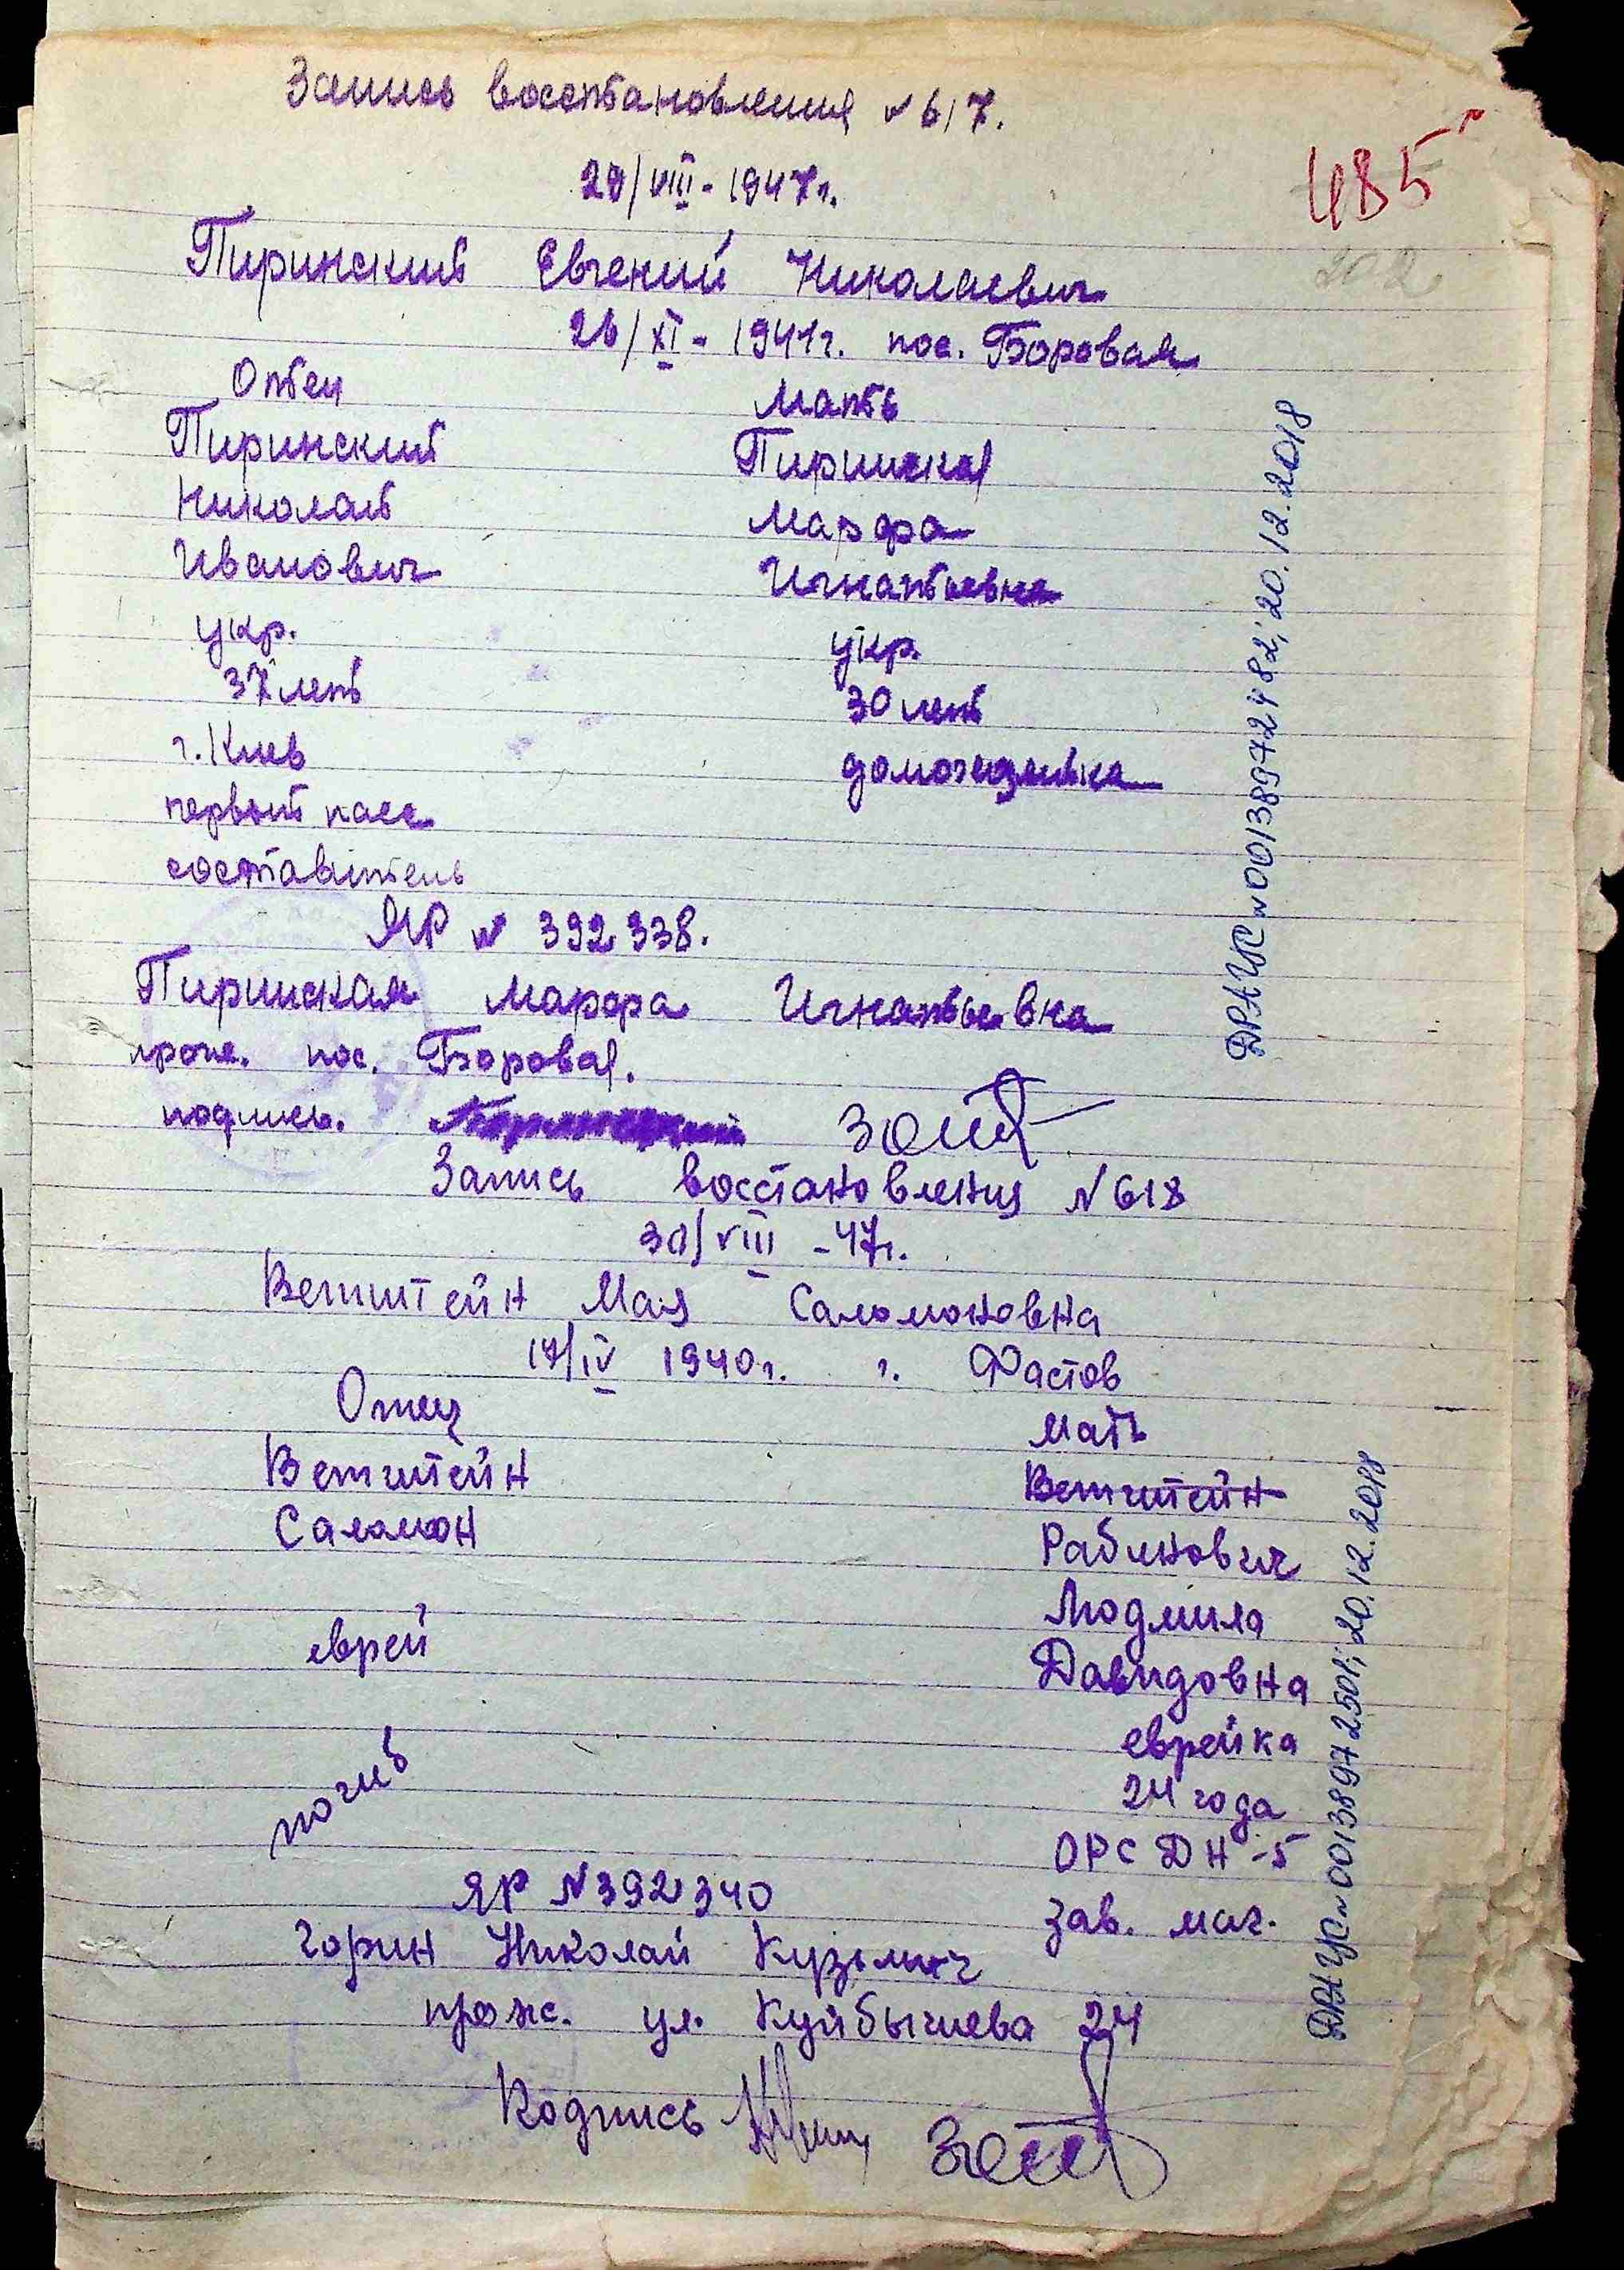 Запись восстановления № 617.
485
29/VIII - 1947 г.
202
Пиринский Евгений Николаевич
26/XI - 1941 г. пос. Боровая
Отец Мать
Пиринский Пиринская
Николай Марфа
Иванович Игнатьевна
укр. укр.
37 лет 30 лет
г. Киев домохозяйка
первый пасс
составитель
ЯР № 392338.
Пиринская Марфа Игнатьевна
прож. пос. Боровая.
подпись.
Запись восстановления № 618
30/VIII - 47 г.
Ветштейн Мая Саломоновна
17/IV 1940 г. г. Фастов
Отец Мать
Ветштейн Ветштейн
Саломон Рабинович
Людмила
еврей Давидовна
еврейка
погиб 24 года
ОРС ДН-5
ЯР № 392340 зав. маг.
Горин Николай Кузьмич
прож. ул. Куйбышева 24
Подпись
ДРАЦС № 00138972482; 20.12.2018
ДРАЦС № 00138972501; 20.12.2018